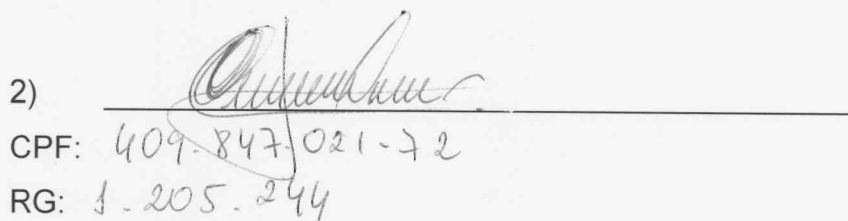 2)
CPF: 409.847.021-72
RG: 1.205.244